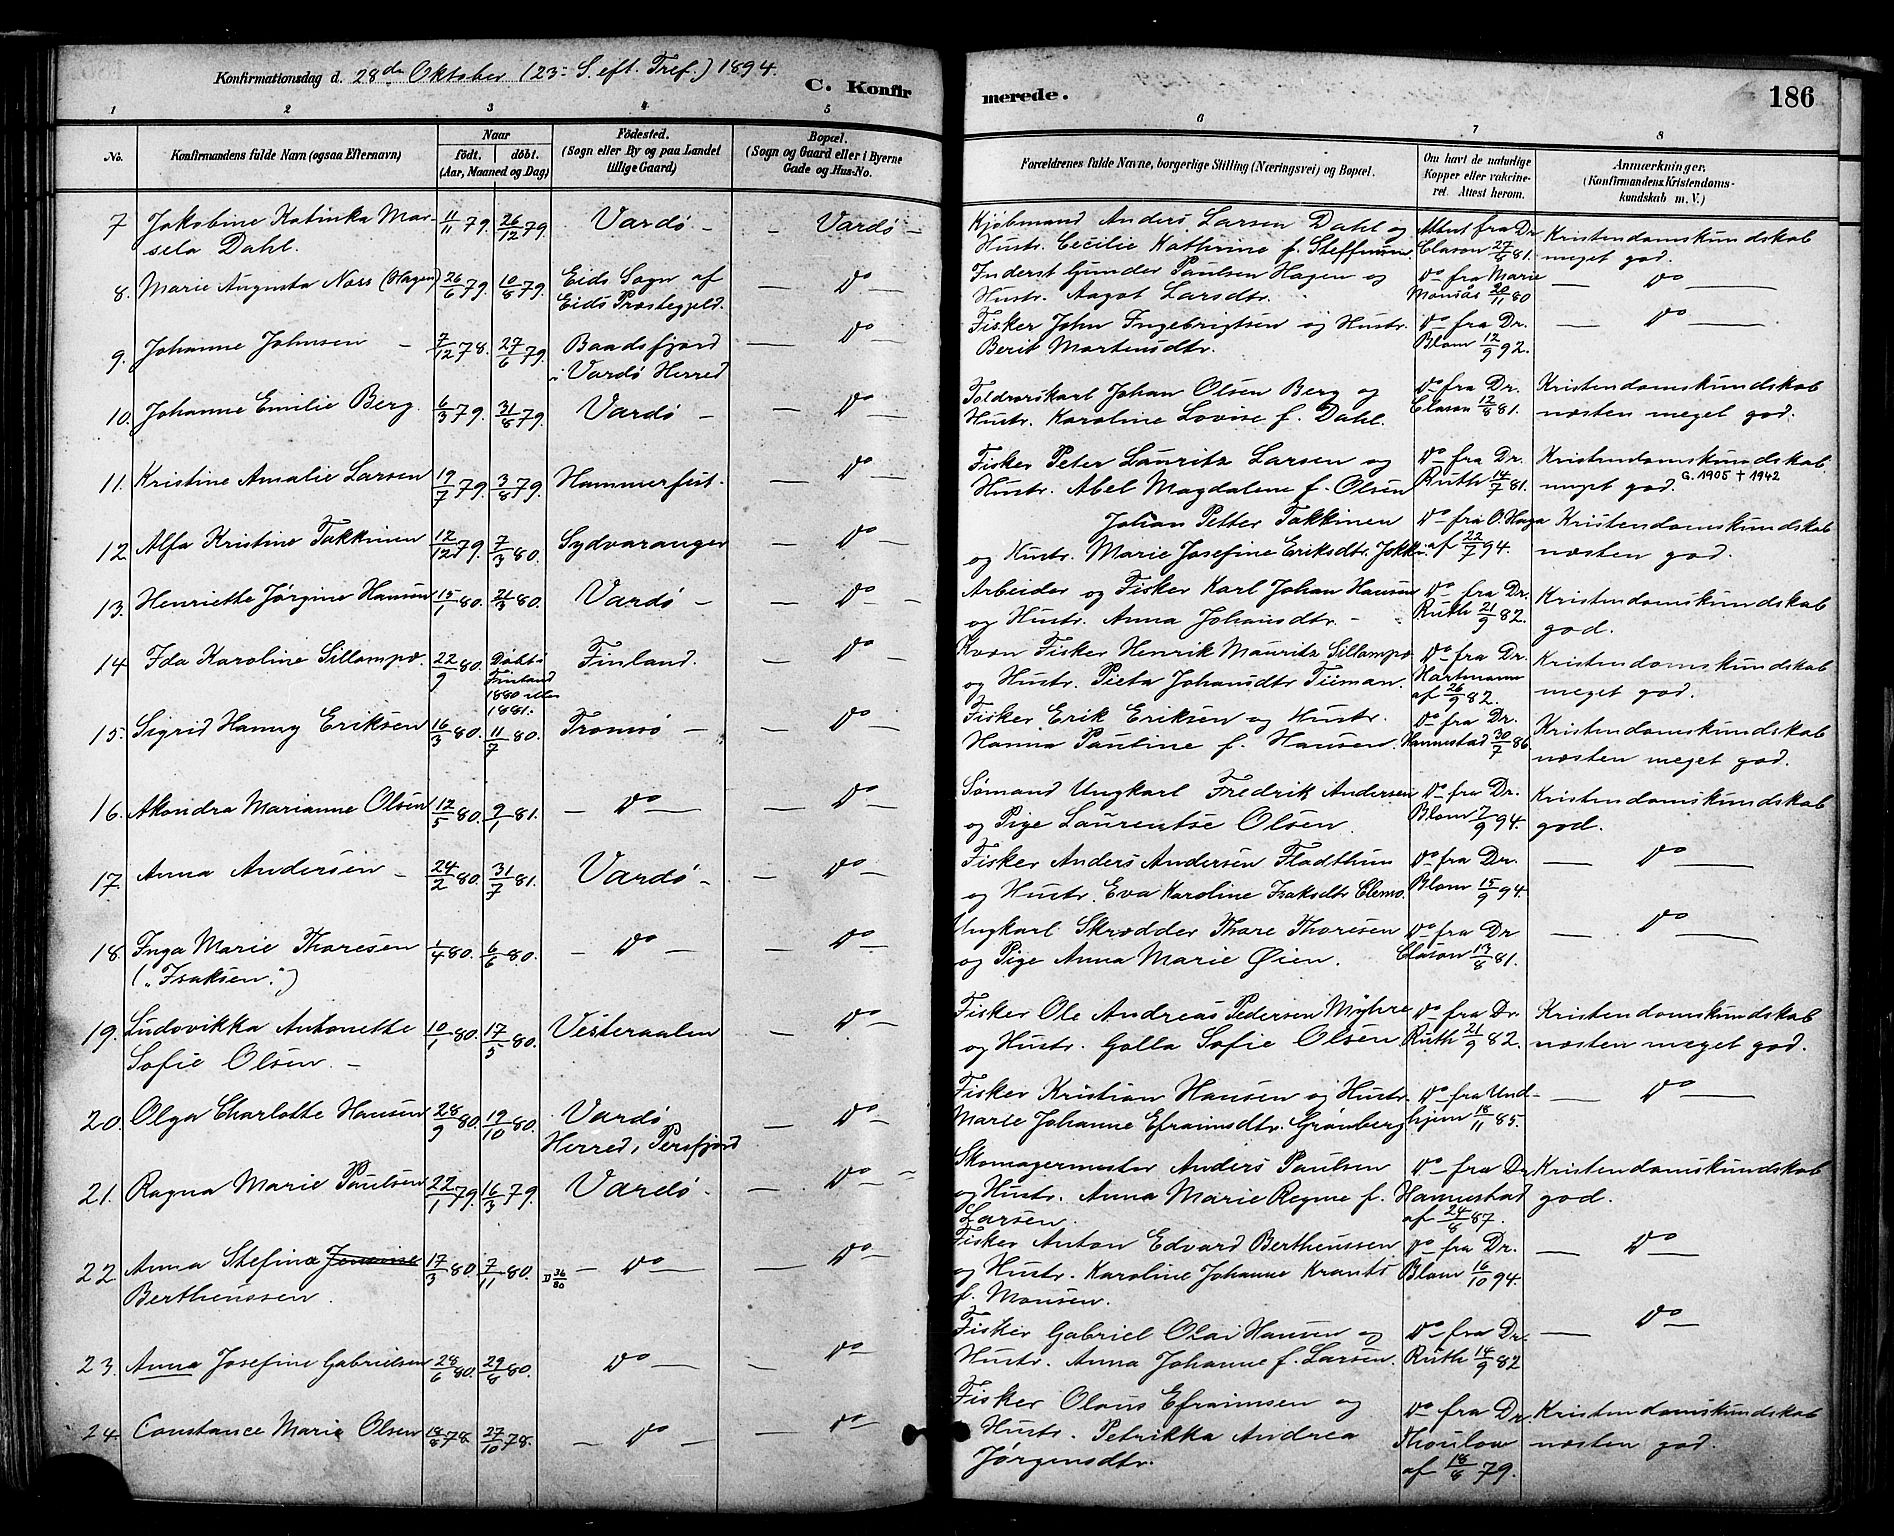 Konfirmationsdag d. 28de Oktober (23= S. eft. Tref.) 1894.
C. Konfirmerede.
186
1 2 3 4 5 6 7 8
No.
Konfirmandens fulde Navn (ogsaa Efternavn)
Naar
födt. döbt.
(Aar, Maaned og Dag)
Födested.
(Sogn eller By og paa Landet
tillige Gaard)
Bopæl.
(Sogn og Gaard eller i Byerne
Gade og Hus-No.
Forældrenes fulde Navne, borgerlige Stilling (Næringsvei) og Bopæl.
Om havt de naturlige
Kopper eller vakcine-
ret. Attest herom.
Anmærkninger.
(Konfirmandens Kristendoms-
kundskab m. V.)
7 Jakobine Katinka Mar- 11/11 79. 26/12 79. Vardö – – Vardö – Kjöbmand Anders Larsen Dahl og Attest fra Dr. Kristendomskundskab
sela Dahl. Hustr. Cecilie Kathrine f. Steffensen Clason 27/8 81. meget god.
8. Marie Augusta Noss (Hagen) 26/6 79. 10/8 79. Eids Sogn af – Do – Inderst Gunder Paulsen Hagen og Do fra Marie – Do –
Eids Præstegjeld. Hustr. Aagot Larsdtr. Monsås 20/11 80
9. Johanne Johnsen – 7/12 78. 27/6 79. Baadsfjord – Do – Fisker John Ingebrigtsen og Hustr. Do fra Dr. – Do –
i Vardö Herred Berit Mortensdtr. Blom 12/9 92.
10. Johanne Emilie Berg. 6/3 79. 31/8 79. Vardö – – Do – Toldrorskarl Johan Olsen Berg og Do fra Dr. Kristendomskundskab
Hustr. Karoline Lovise f. Dahl. Clason 12/8 81. næsten meget god.
11. Kristine Amalie Larsen 19/7 79. 3/8 79. Hammerfest. – Do – Fisker Peter Lauritz Larsen og Do fra Dr. Kristendomskundskab
Hustr. Abel Magdalene f. Olsen Ruth 14/7 81. meget god. G. 1905 † 1942
12. Alfa Kristine Takkinen 12/12 79. 7/3 80. Sydvaranger – Do – Johan Petter Takkinen Do fra O. Haga Kristendomskundskab
og Hustr. Marie Josefine Eriksdtr. af 22/7 94. næsten god.
13. Henriette Jørgine Hansen 15/1 80. 21/3 80. Vardö – – Do – Arbeider og Fisker Karl Johan Hansen Do fra Dr. Kristendomskundskab
og Hustr. Anna Johansdtr. – Ruth 21/9 82. god.
14. Ida Karoline Sillampæ. 22/9 80. Döbt i Finland. – Do – Kvæn Fisker Henrik Mauritz Sillampæ Do fra Dr. Kristendomskundskab
Finland og Hustr. Pieta Johansdtr Tiiman. Hartmann meget god.
1880 eller af 26/9 82.
1881.
15. Sigrid Hanny Eriksen 16/3 80. 11/7 80. Tromsö – – Do – Fisker Erik Eriksen og Hustr. Do fra Dr. Kristendomskundskab
Hanna Pauline f. Hansen. Hannestad 30/7 86. næsten meget god.
16. Akondra Marianne Olsen 12/5 80. 9/1 81. – Do – – Do – Sømand Ungkarl Fredrik Andersen Do fra Dr. Kristendomskundskab
og Pige Laurentse Olsen. Blom 7/9 94. god.
17. Anna Andersen – 24/2 80. 31/7 81. Vardö – – Do – Fisker Anders Andersen Fladthun Do fra Dr. – Do –
og Hustr. Eva Karoline Isaksdtr Clemo. Blom 15/9 94.
18. Inga Marie Thoresen 1/4 80. 6/6 80. – Do – – Do – Ungkarl Skrædder Thore Thoresen Do fra Dr – Do –
("Isaksen".) og Pige Anna Marie Øien. Clason 13/8 81.
19. Ludovikka Antonette 10/1 80. 17/5 80. Vesteraalen – Do – Fisker Ole Andreas Pedersen Myhre Do fra Dr Kristendomskundskab
Sofie Olsen. – og Hustr. Golla Sofie Olsen Ruth 21/9 82. næsten meget god.
20. Olga Charlotte Hansen 28/9 80. 19/10 80. Vardö – Do – Fisker Kristian Hansen og Hustr. Do fra Und- – Do –
Herred, Persfjord Marie Johanne Efraimsdtr. Grönberg hjem 18/11 85.
21. Ragna Marie Paulsen 22/1 79. 16/3 79. Vardö – – Do – Skomagermester Anders Paulsen Do fra Dr Kristendomskundskab
og Hustr. Anna Marie Regine f. Hannestad god.
Larsen. af 24/8 87.
22. Anna Stefina 17/3 80. 7/11 80. D 36/80 – Do – – Do – Fisker Anton Edvard Bertheussen Do fra Dr. – Do –
Bertheussen. og Hustr. Karoline Johanne Krantz Blom 16/10 94.
f. Monsen.
23. Anna Josefine Gabrielsen 28/6 80. 29/8 80. – Do – – Do – Fisker Gabriel Olai Hansen og Do fra Dr. – Do –
Hustr. Anna Johanne f. Larsen. Ruth 14/9 82
24. Constance Marie Olsen 18/8 78. 27/10 78. – Do – – Do – Fisker Olaus Efraimsen og Do fra Dr. Kristendomskundskab
Hustr. Petrikka Andrea Thoulow næsten god.
Jørgensdtr. af 18/8 79.